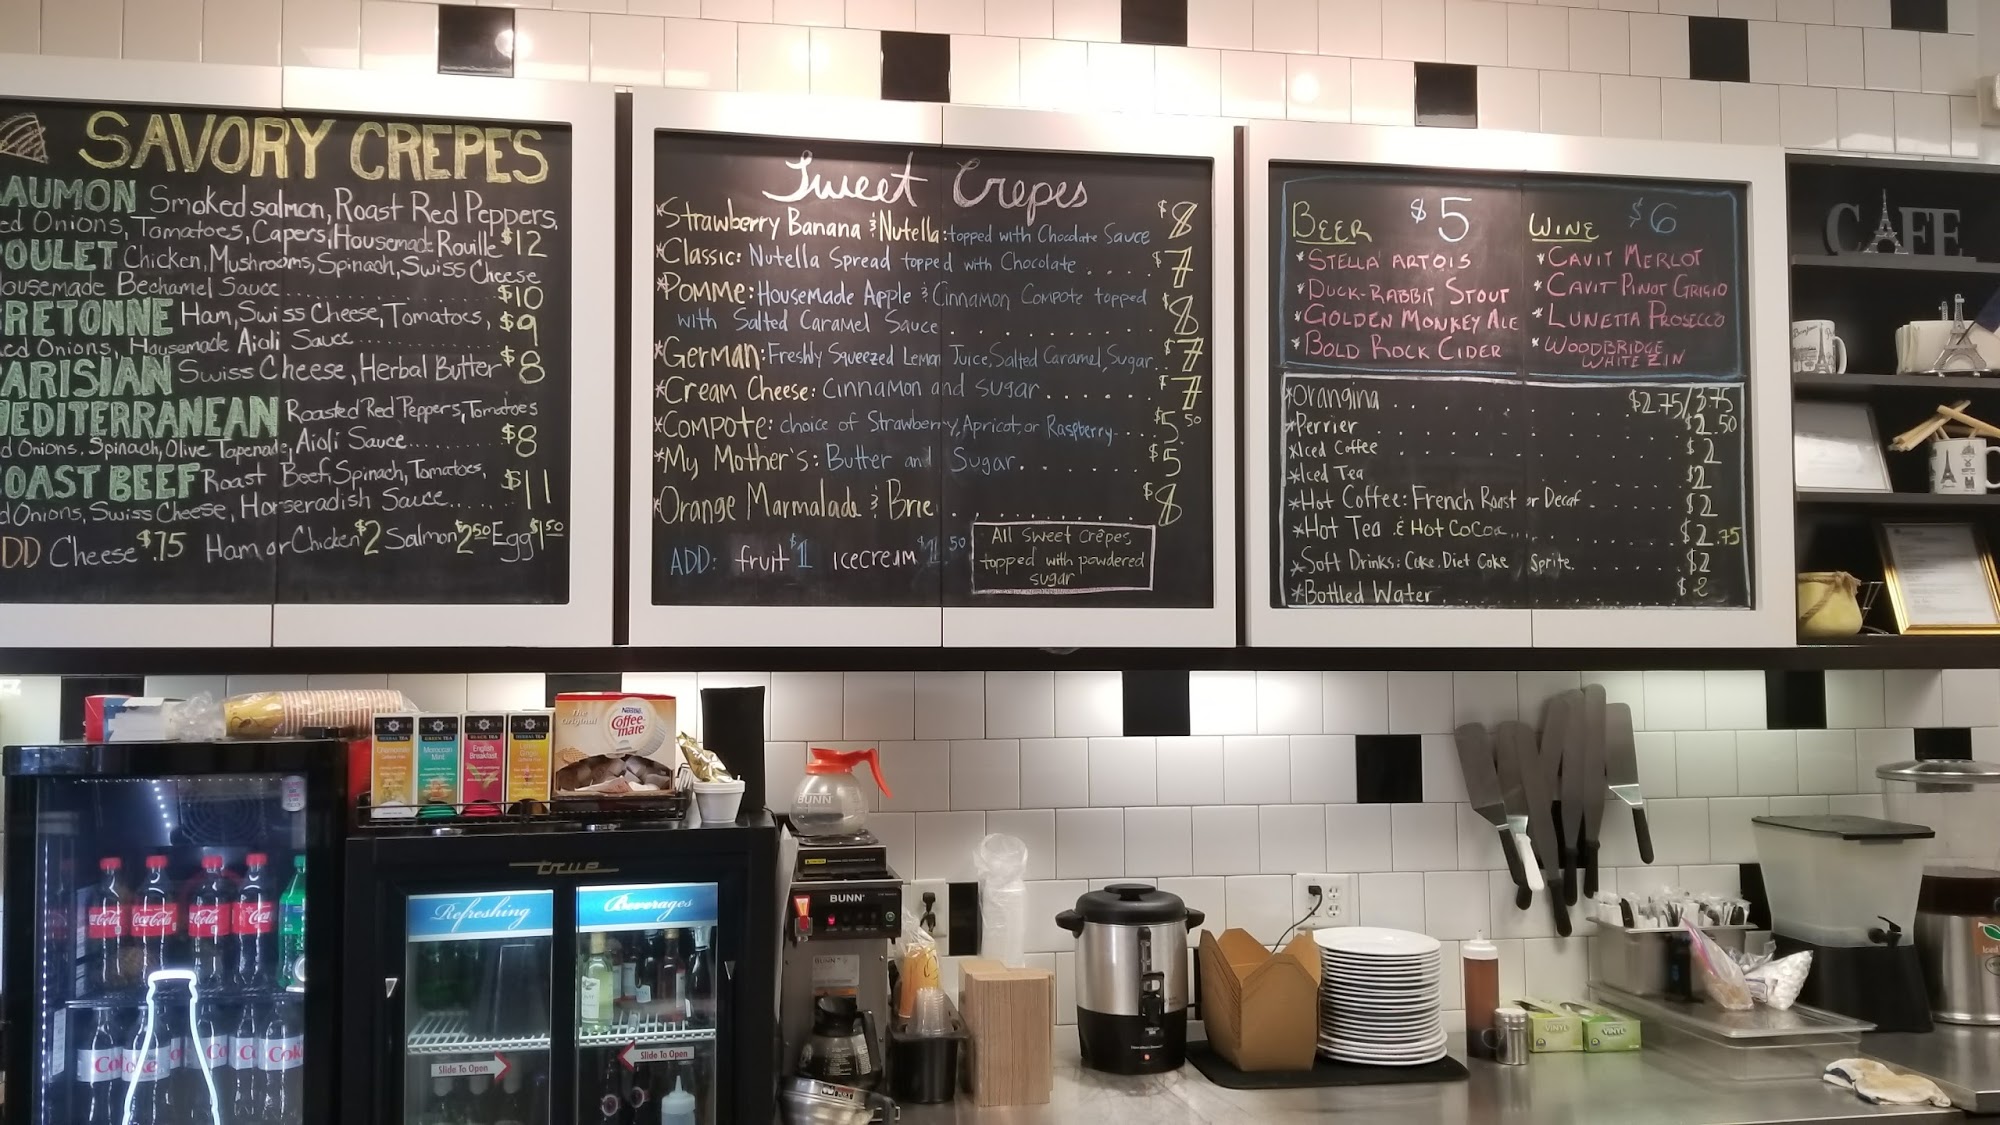 SAVORY CREPES
AUMON Smoked salmon, Roast Red Peppers,
ed Onions, Tomatoes, Capers, Housemade Rouille $12
OULET Chicken, Mushrooms, Spinach, Swiss Cheese
ousemade Bechamel Sauce............ $10
RETONNE Ham, Swiss Cheese, Tomatoes, $9
ed Onions, Housemade Aioli Sauce......
ARISIAN Swiss Cheese, Herbal Butter $8
MEDITERRANEAN Roasted Red Peppers, Tomatoes
d Onions, Spinach, Olive Tapenade, Aioli Sauce...... $8
OAST BEEF Roast Beef, Spinach, Tomatoes,
d Onions, Swiss Cheese, Horseradish Sauce..... $11
DD Cheese $.75 Ham or Chicken $2 Salmon $2.50 Egg $1.50
Sweet Crepes
*Strawberry Banana & Nutella: topped with Chocolate Sauce $8
*Classic: Nutella Spread topped with Chocolate.... $7
*Pomme: Housemade Apple & Cinnamon Compote topped
with Salted Caramel Sauce.......... $8
*German: Freshly Squeezed Lemon Juice, Salted Caramel, Sugar.. $7
*Cream Cheese: Cinnamon and sugar...... $7
*Compote: choice of Strawberry, Apricot, or Raspberry... $5.50
*My Mother's: Butter and Sugar....... $5
*Orange Marmalade & Brie.......... $8
ADD: fruit $1 icecream $1.50
All sweet crêpes
topped with powdered
sugar
BEER $5
*STELLA ARTOIS
*DUCK-RABBIT STOUT
*GOLDEN MONKEY ALE
*BOLD ROCK CIDER
WINE $6
*CAVIT MERLOT
*CAVIT PINOT GRIGIO
*LUNETTA PROSECCO
*WOODBRIDGE
WHITE ZIN
*Orangina.......... $2.75/3.75
*Perrier.......... $2.50
*Iced Coffee $2
*Iced Tea $2
*Hot Coffee: French Roast or Decaf...... $2
*Hot Tea & Hot Cocoa...... $2.75
*Soft Drinks: Coke, Diet Coke Sprite...... $2
*Bottled Water.......... $2
CAFE
The Original
Nestle
Coffee-mate
HERBAL TEA
Chamomile
GREEN TEA
Moroccan Mint
BLACK TEA
English Breakfast
HERBAL TEA
true
Refreshing
Beverages
Slide To Open
Slide To Open
Coca-Cola
Coca-Cola
Coca-Cola
Coca-Cola
Coke
BUNN
BUNN
VINYL
VINYL
Iced